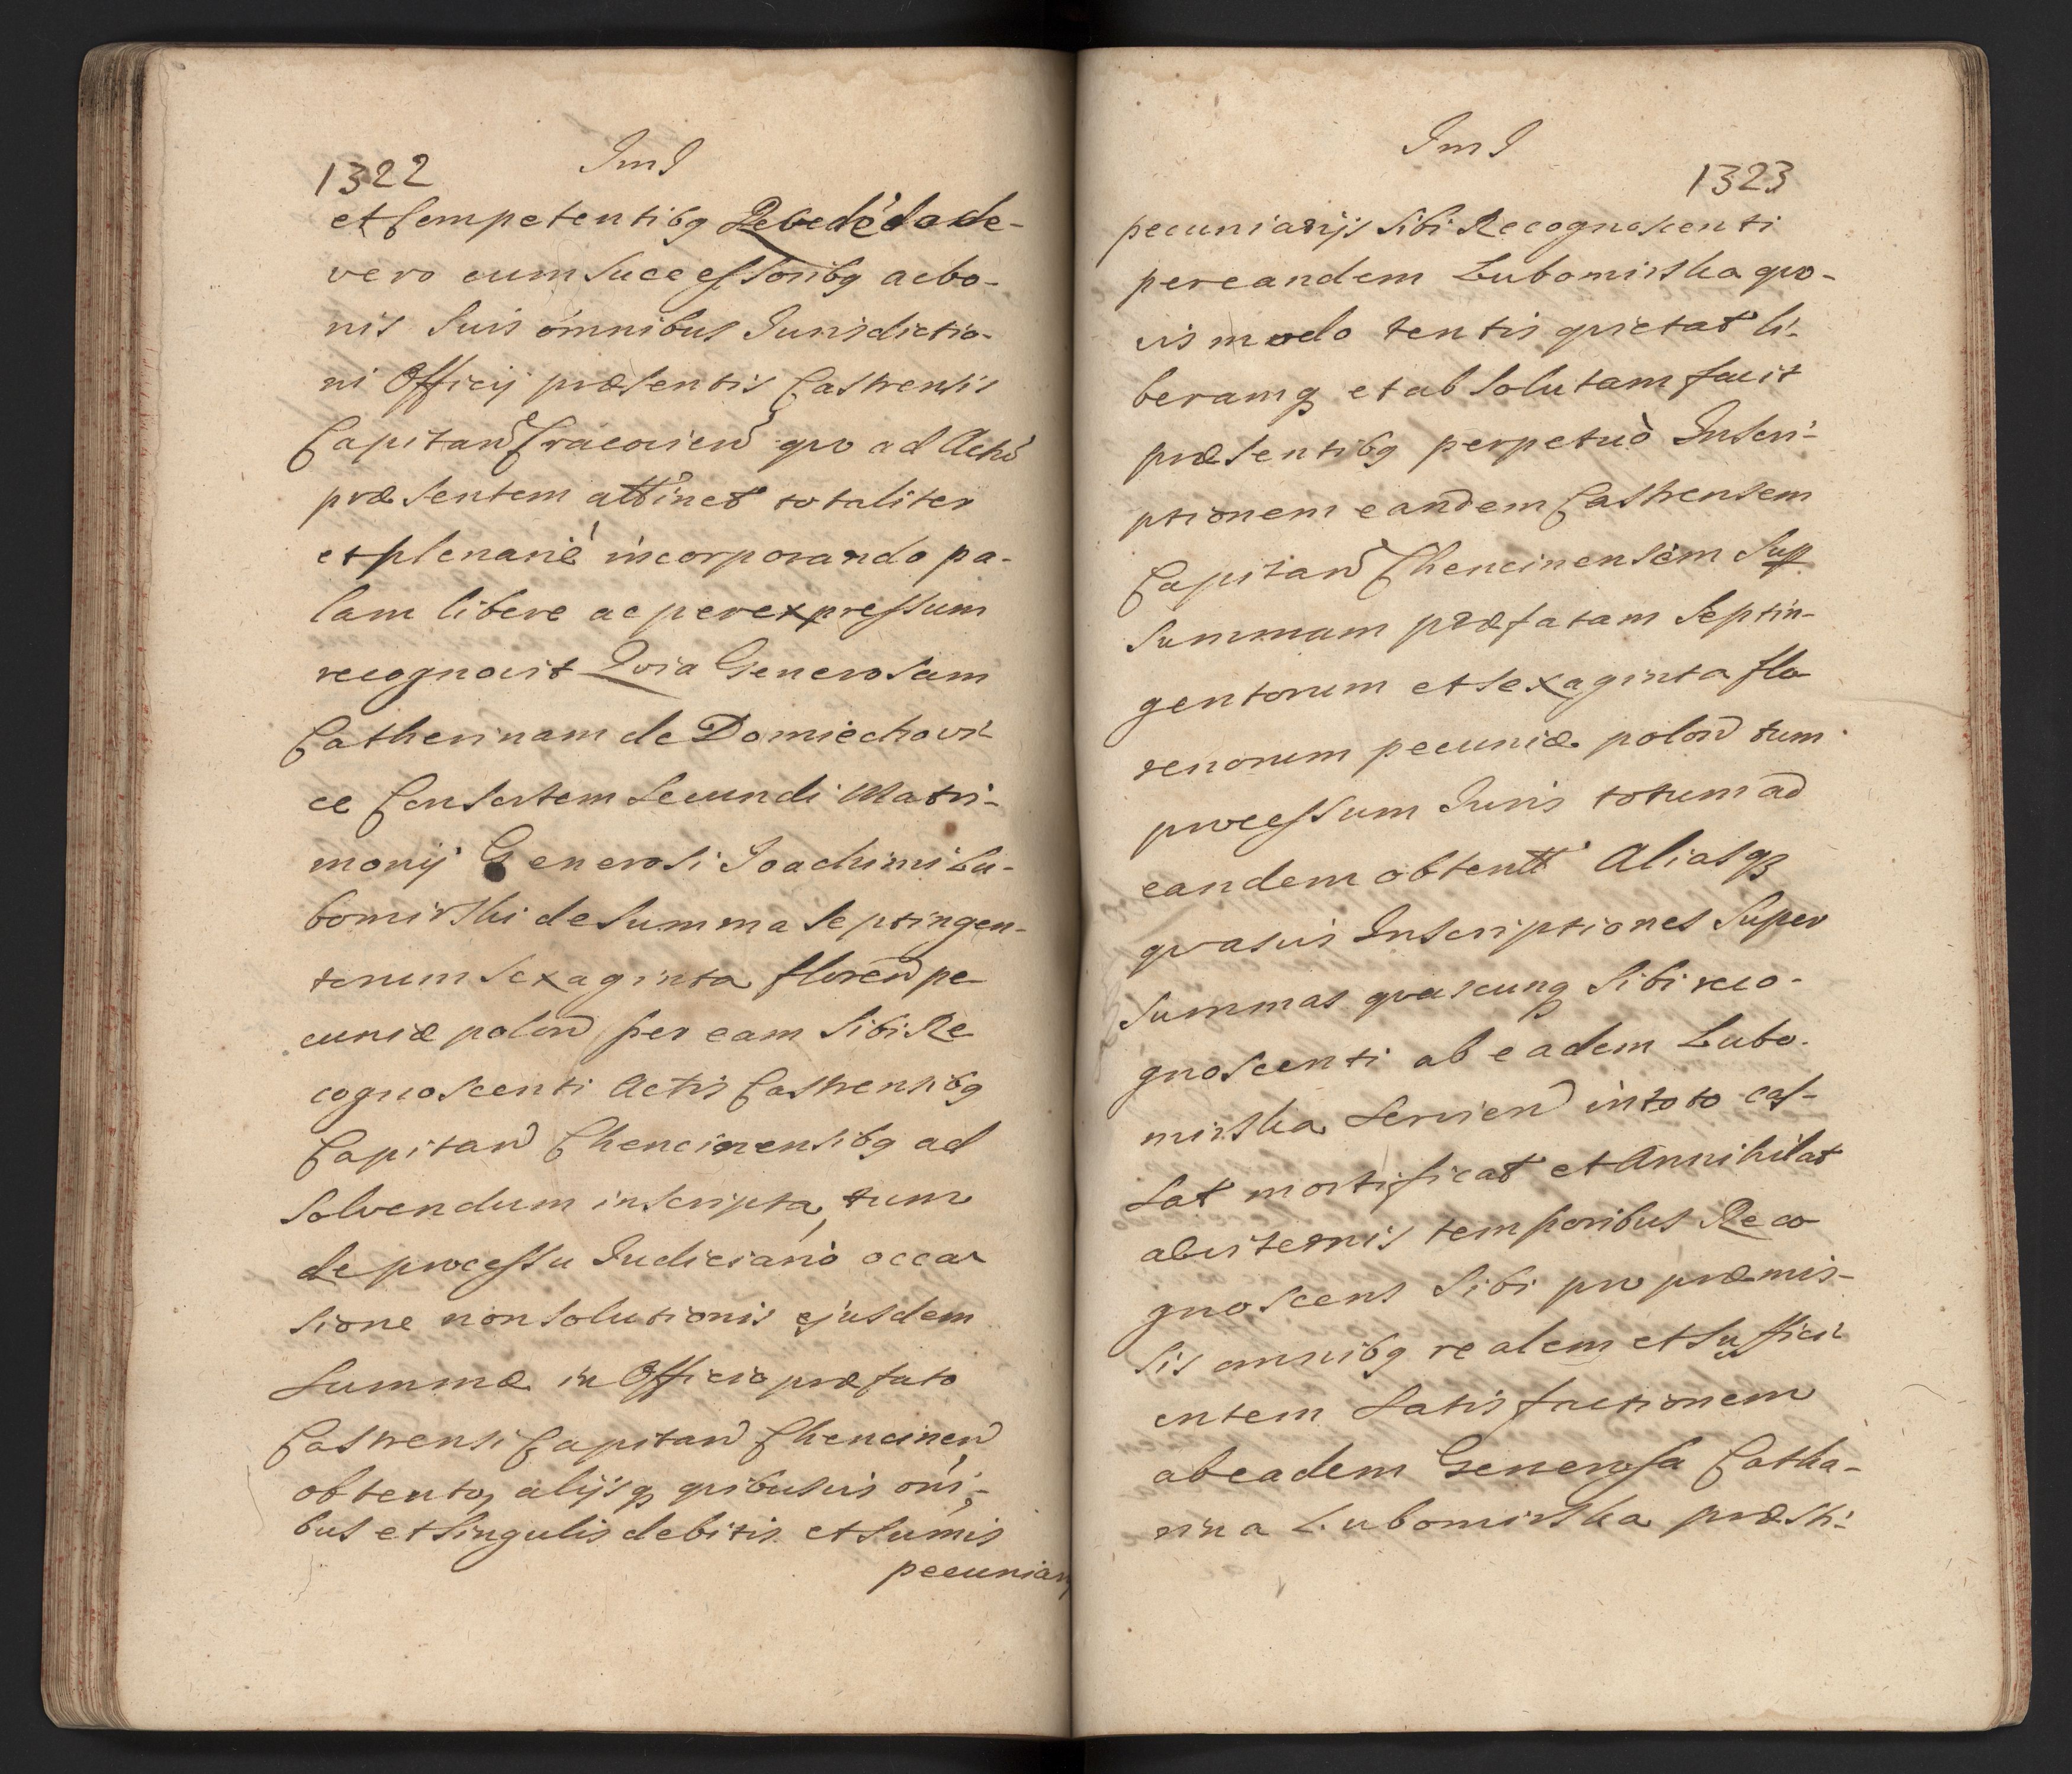 1322 ImJ
et Competentibq Recedédo de-
vero cum Successoribq ac bo-
nis Suis omnibus Iurisdictio-
ni Officij præsentis Castrensis
Capitan Cracovien quo ad Actu
præsentem attinet totaliter
et plenariè incorporando pa-
lam libere ac per expressum
recognovit Quia Generosam
Catherinam de Domiechovi-
ce Consortem Secundi Matri-
monij Generosi Joachimi Lu-
bomirski de Summa Septingen-
torum Sexaginta floren pe-
cuniæ polon per eam Sibi Re
cognoscenti Actis Castrensibq
Capitan Chencinensibq ad
Solvendum inscripta, tum
de processu Iudiciario occa-
sione non Solutionis ejusdem
Summæ in Officio præfato
Castrensi Capitan Chencinen
obtento, alijsq quibusvis omi-
bus et Singulis debitis et Sumis
pecuniarij
ImJ 1323
pecuniarijs Sibi Recognoscenti
per eandem Lubomirska quo-
vis modo tentis quietat li-
beramq et ab Solutam facit
præsentibq perpetuò Inscri-
ptionem eandem Castrensem
Capitan Chencinensem Sup
Summam præfatam Septin-
gentorum et Sexaginta flo-
renorum pecuniæ polon tum
processum Iuris totum ad
eandem obtent Aliasq
quasvis Inscriptiones Super
Summas quascunq Sibi reco-
gnoscenti ab eadem Lubo-
mirska Servien in toto cas-
Sat mortificat et Annihilat
aeviternis temporibus Reco-
gnoscens Sibi pro præmis-
Sis omnibq realem et Suffici-
entem Satisfactionem
ab eadem Generosa Catha-
rina Lubomirska præsti-